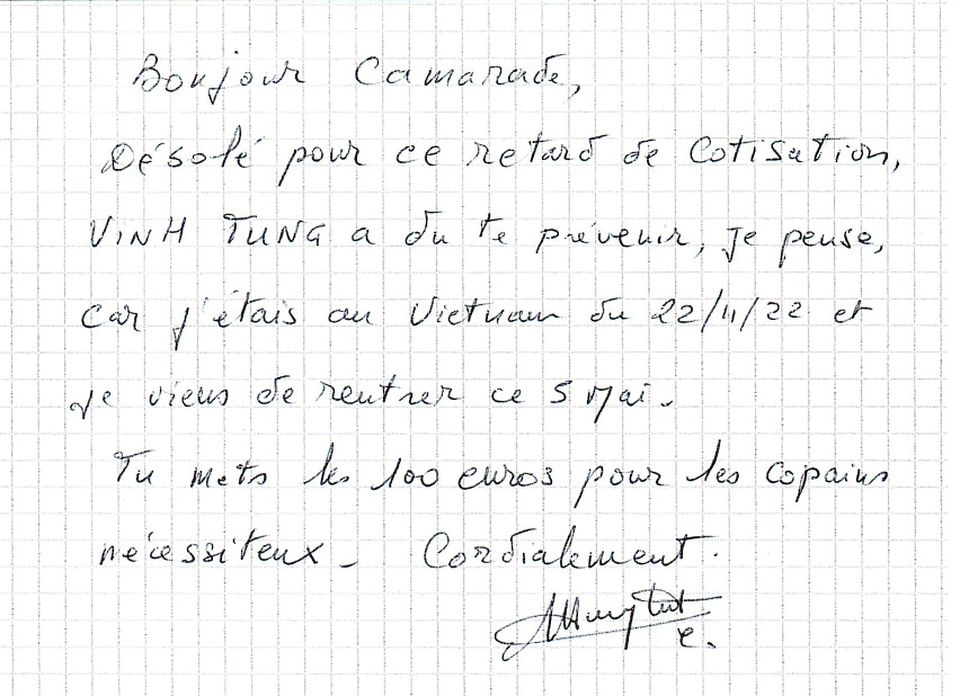 Bonjour Camarade,
Désolé pour ce retard de Cotisation,
VINH TUNG a du te prévenir, je pense,
Car j'étais au Vietnam du 22/11/22 et
je viens de rentrer ce 5 Mai.
Tu mets les 100 euros pour les copains
nécessiteux - Cordialement.